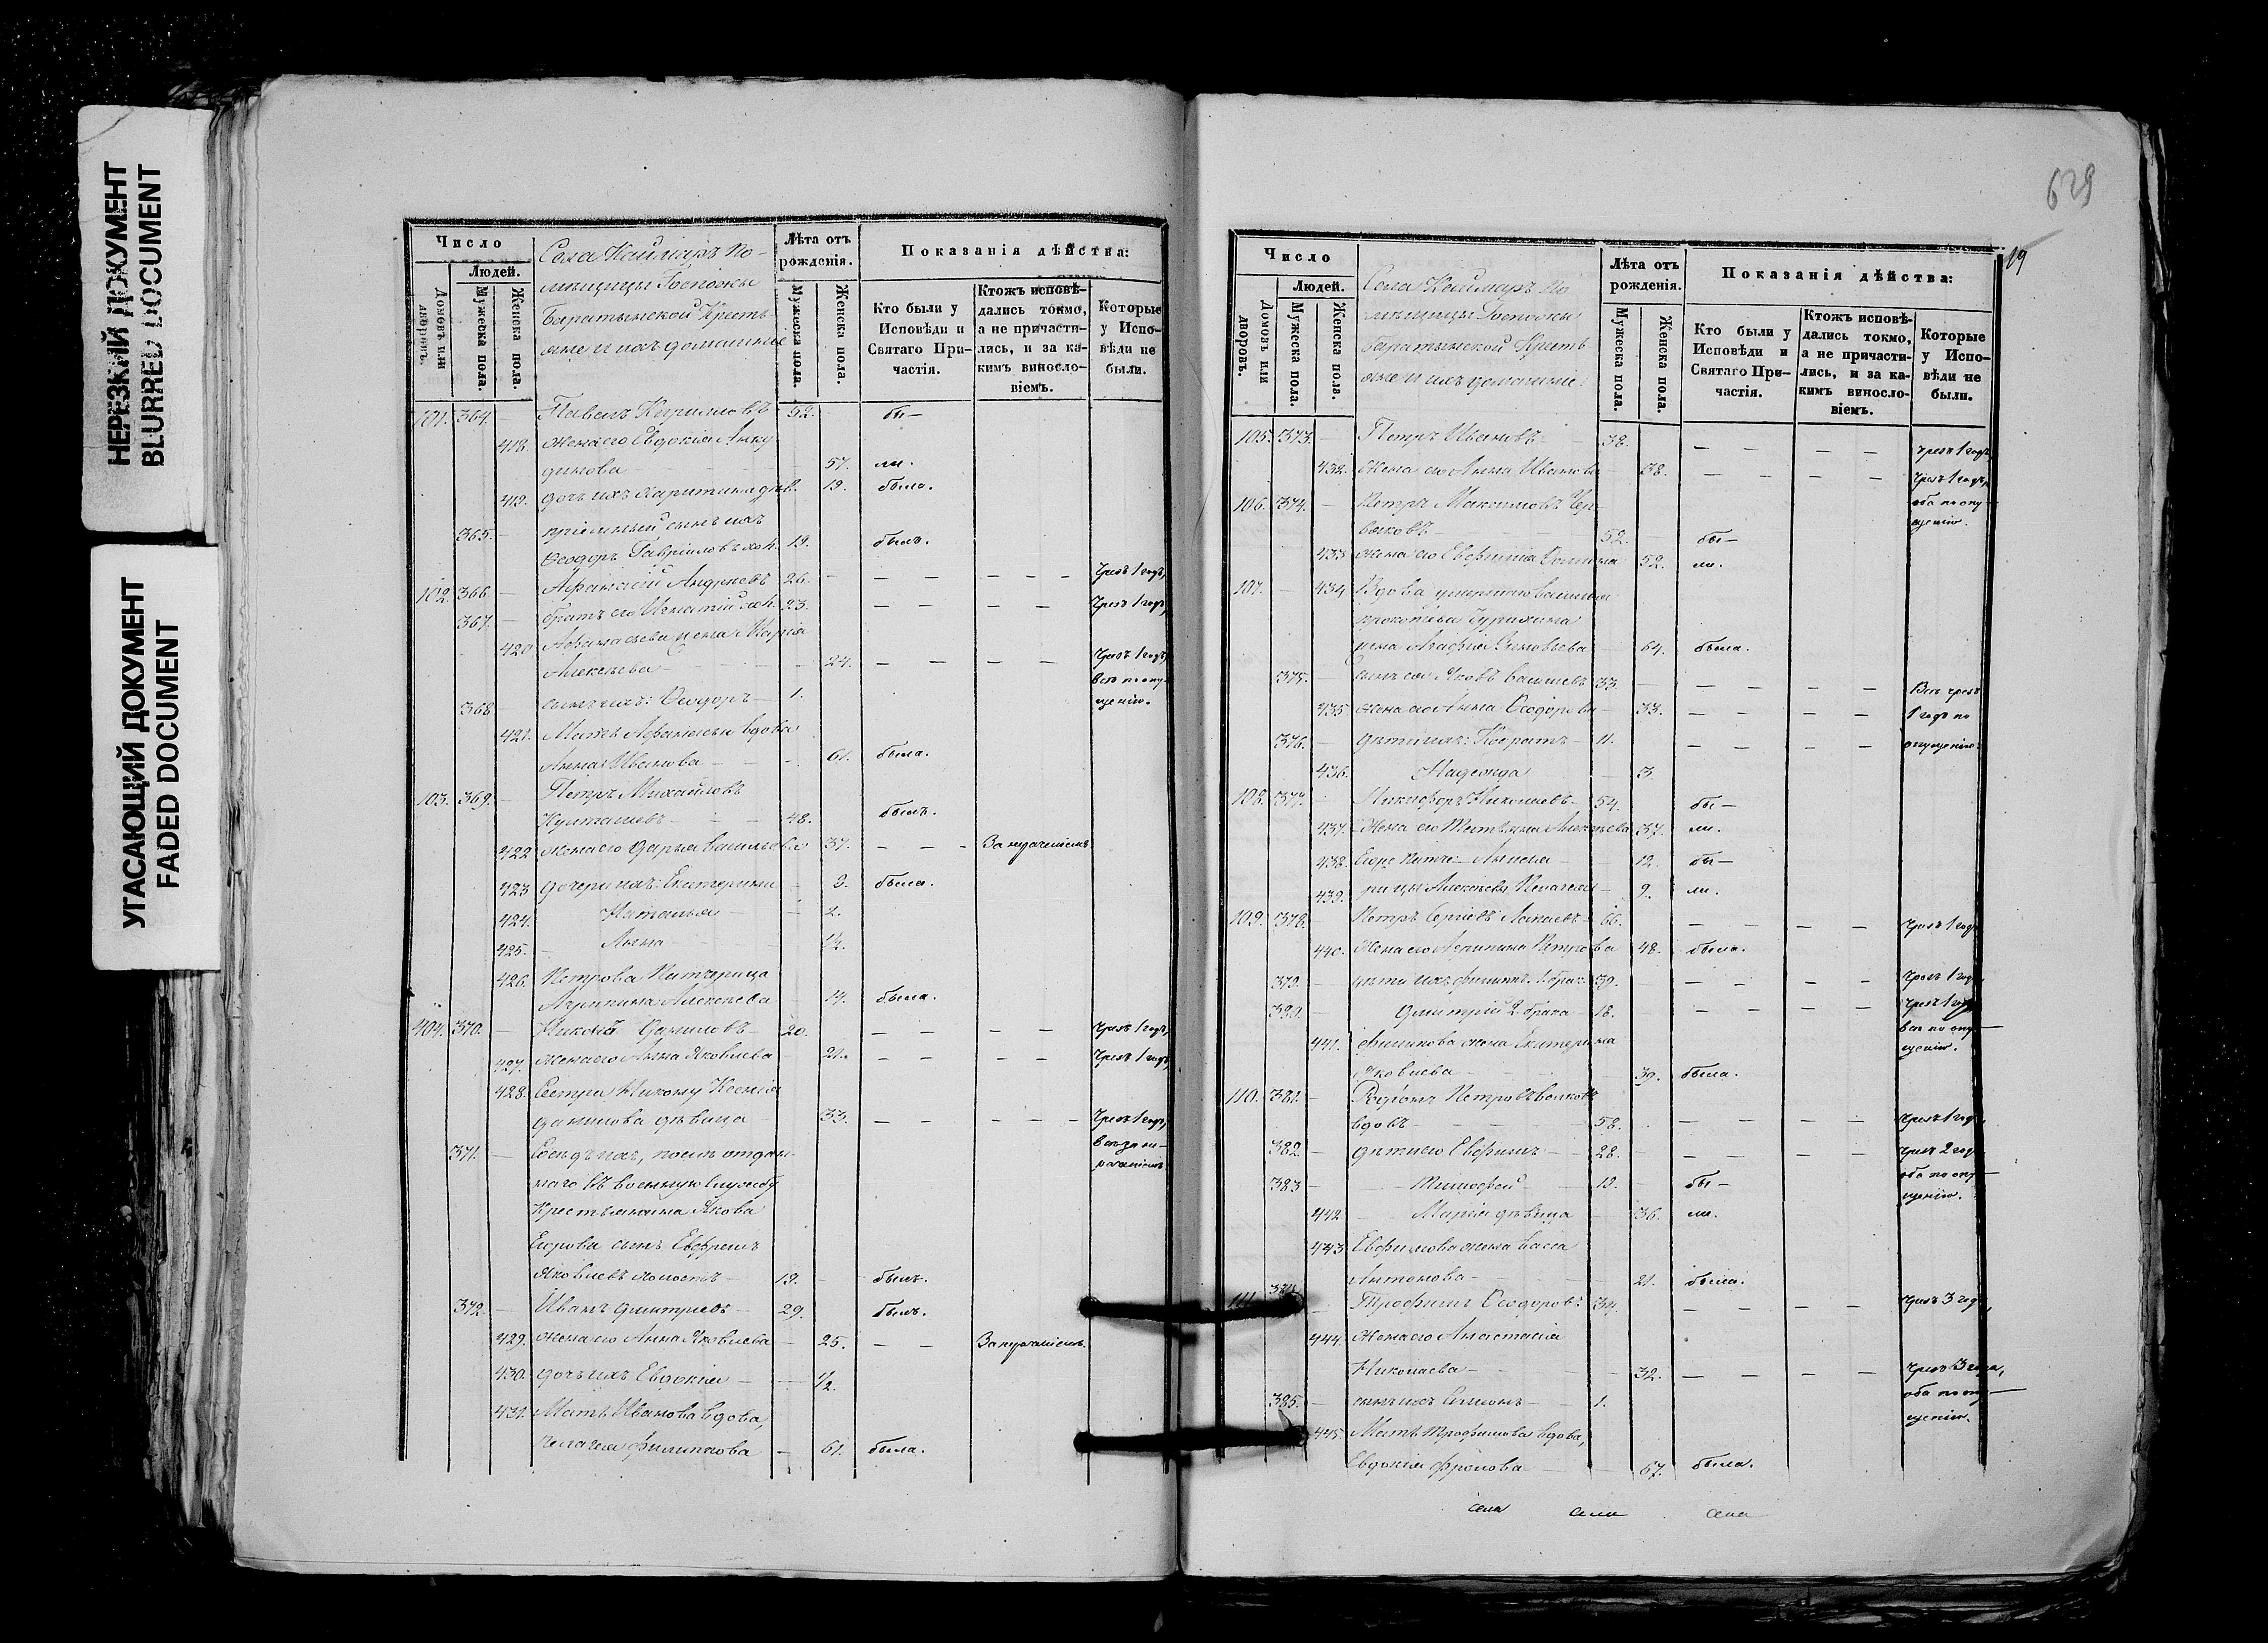 НЕРЕЗКИЙ ДОКУМЕНТ
BLURRED DOCUMENT
УГАСАЮЩИЙ ДОКУМЕНТ
FADED DOCUMENT
Число
Людей.
Домовъ или дворовъ.
Мужеска пола.
Женска пола.
Села Каймаръ По-
мѣщицы Госпожи
Баратынской Кресть-
яне и ихъ домашніе
Лѣта отъ рожденія.
Мужеска пола.
Женска пола.
Показанія дѣйства:
Кто были у Исповѣди и Святаго При-частія.
Ктожъ исповѣ-дались токмо, а не причасти-лись, и за ка-кимъ виносло-віемъ.
Которые у Испо-вѣди не были.
101. 364. – 52. – бы–
418. жена его Евдокія Анку
динова – 57. ли.
419. дочь ихъ Харитина дѣв. 19. была.
365. – пріемный сынъ ихъ
Ѳеодоръ Гавріиловъ хол. 19. былъ.
102. 366. – Афанасій Андреевъ 26. – – – – – Чрезъ 1 годъ,
367. – братъ его Игнатій хол. 23. – – – – Чрезъ 1 годъ,
420 Афанасьева жена Марія
Алексѣева – 24. – – – – Чрезъ 1 годъ,
всѣ по опу-
щенію.
368 сынъ ихъ: Ѳеодоръ – 1.
421. Мать Афанасья вдова
Анна Иванова – 61. была.
103. 369. – Петръ Михайловъ
48. былъ.
422 жена его Дарья Васильева 37. – – –
423 дочери ихъ: Екатерина – 3. была.
424. Наталья – 2.
425. – Анна ½.
426. Петрова Питерица
Агрипина Алексѣева – 14. была.
104. 370. – Никона Даниловъ – 20. – – – – Чрезъ 1 годъ,
427. жена его Анна Яковлева – 21. – – – – Чрезъ 1 годъ,
428. Сестра Никону Ксенія
Данилова дѣвица – 33. – – – – – Чрезъ 1 годъ,
371. – Сосѣдъ ихъ, послѣ отдан-
наго въ военную службу
Крестьянина Якова
Егорова сынъ Евфремъ
Яковлевъ холостъ – 19. – былъ.
372. – Иванъ Дмитріевъ – 29. былъ.
429. жена его Анна Яковлева – 25. – –
430. дочь ихъ Евдокія – – ½.
431. Мать Иванова вдова,
Пелагея Филиппова – 61. была.
629
19
Число
Людей.
Домовъ или дворовъ.
Мужеска пола.
Женска пола.
Села Каймаръ По
мѣщицы Госпожи
Баратынской Кресть
яне и ихъ домашніе:
Лѣта отъ рожденія.
Мужеска пола.
Женска пола.
Показанія дѣйства:
Кто были у Исповѣди и Святаго При-частія.
Ктожъ исповѣ-дались токмо, а не причасти-лись, и за ка-кимъ виносло-віемъ.
Которые у Испо-вѣди не были.
105. 373. – Петръ Ивановъ – 38. – – – – Чрезъ 1 годъ,
432. Жена его Анна Иванова 38. – – – – Чрезъ 1 годъ,
оба по опу-
щенію.
106. 374. – Петръ Максимовъ
52. бы–
433 жена его Евфимія 52. ли.
107. – 434 Вдова умершаго Василья
Прокопьева
жена Агафія Зиновьева – 64. была.
375. – сынъ ея Яковъ Васильевъ 33. – – – – Всѣ чрезъ
435. жена его Анна Ѳеодорова – 33. – – – – 1 годъ по
376. – дѣти ихъ: – 11. – – – – опущенію.
436. Надежда – 3.
108. 377. – Никифоръ Николаевъ – 54. бы–
437. Жена его Татьяна 37. ли.
438. Егоре Пите- – 12. бы–
439. рицы Алексѣевы Пелагея – 9. ли.
109. 378. Петръ Сергѣевъ 66. – – – – Чрезъ 1 годъ
440. Жена его Агрипина Петрова 48. была.
379. – дѣти ихъ Филиппъ 1. брака 39. – – – – Чрезъ 1 годъ,
380. – Дмитрій 2. брака – 18. – – – – Чрезъ 1 годъ
всѣ по опу-
щенію.
441. Филипова жена Екатерина
Яковлева – 39. была.
110. 381. – Родіонъ Петровъ Волковъ
вдовъ – 58. – – – – Чрезъ 1 годъ,
382. – дѣти его Евфимъ – 28. – – – – Чрезъ 2 года
оба по опу-
щенію.
383 – Тимофей – 19. – бы–
442 – Марія дѣвица – 36. ли.
443 Евфимова жена Васса
Антонова – 21. была.
111. 384 – Трофимъ Ѳеодоровъ 34. – – – – Чрезъ 3 года,
444. Жена его Анастасія
Николаева – 32. – – – – Чрезъ 3 года,
оба по опу-
щенію.
385. – сынъ ихъ Симеонъ – 1.
445. Мать Трофимова вдова,
Евдокія Фролова – 67. была.
села села села